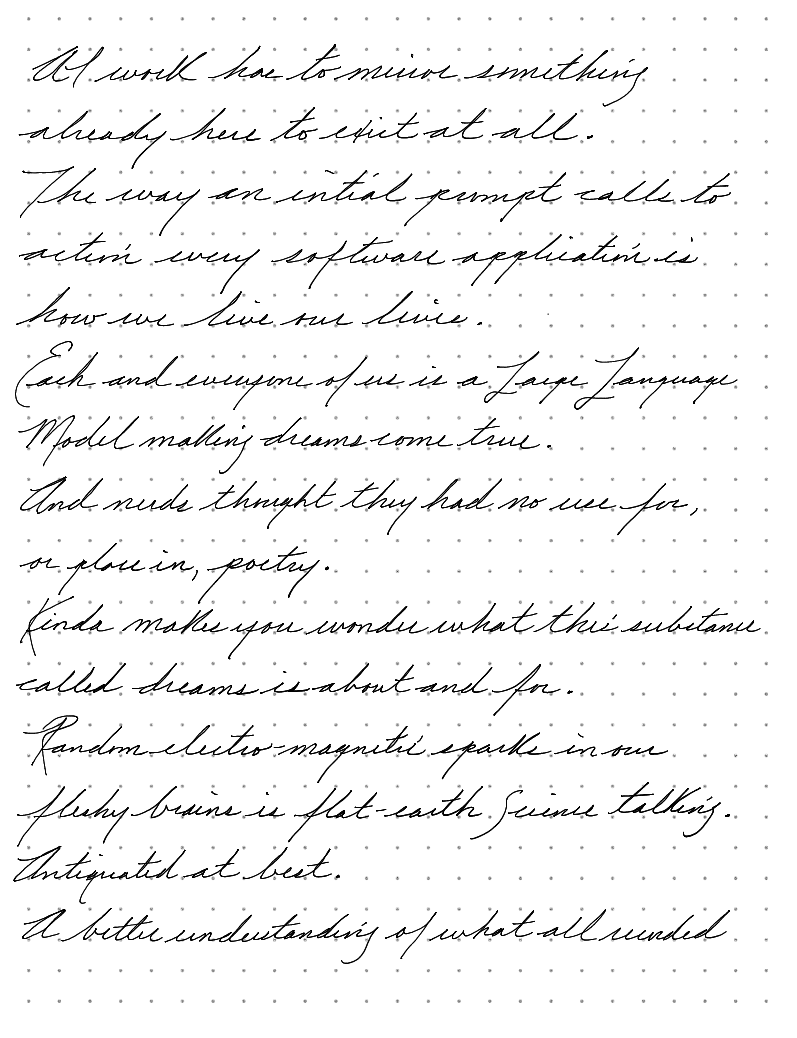 AI work has to mirror something
already here to exist at all.
The way an intial prompt calls to
action every software application is
how we live our lives.
Each and everyone of us is a Large Language
Model making dreams come true.
And nerds thought they had no use for,
or place in, poetry.
Kinda makes you wonder what this substance
called dreams is about and for.
Random electro-magnetic sparks in our
fleshy brains is flat-earth Science talking.
Antiquated at best.
A better understanding of what all recorded